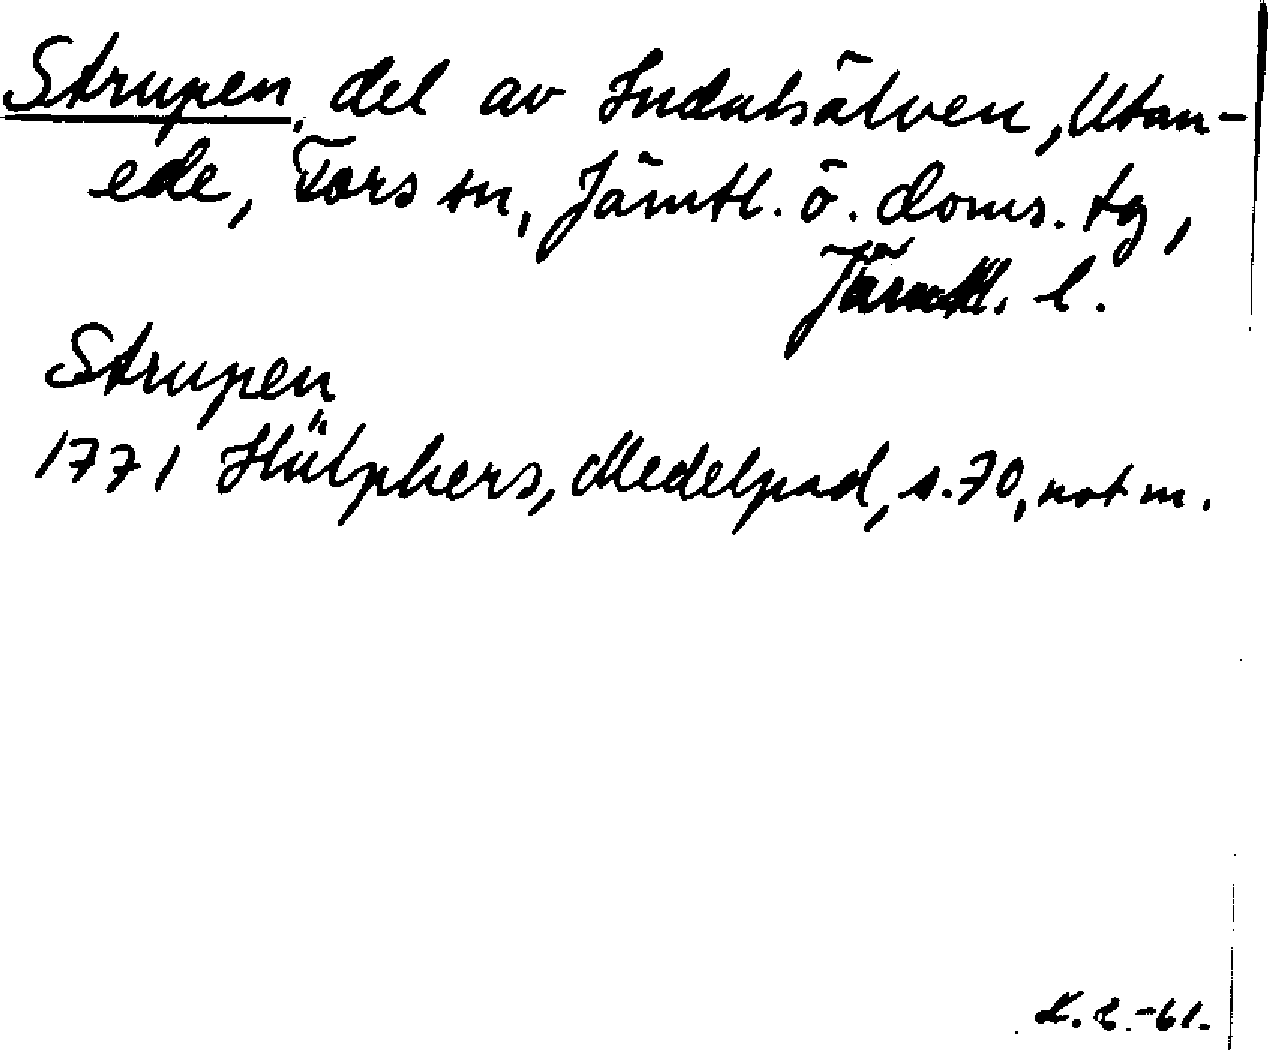 Strupen, del av Indalsälven, Utan-
ede, Fors sn, Jämtl. ö. doms. tg,
Jämtl. l.
Strupen
1771 Hülphers, Medelpad, s. 70, not m.